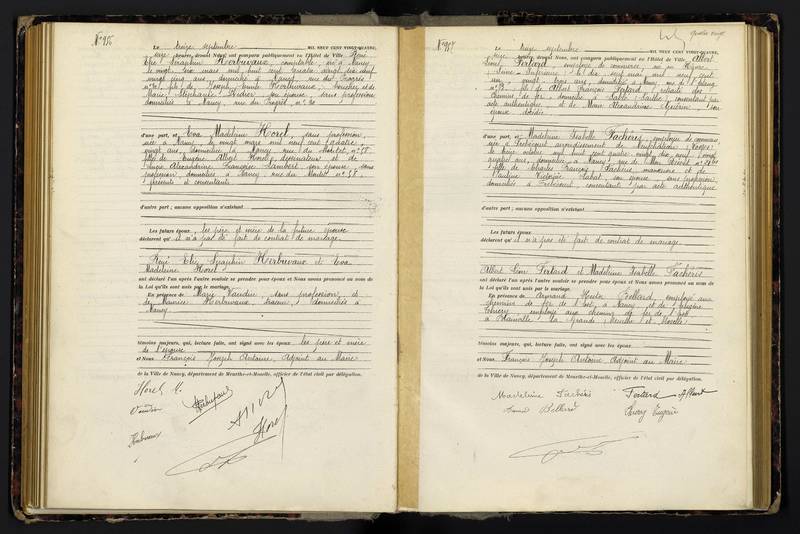 N° 916
Le treize septembre MIL NEUF CENT VINGT-QUATRE,
heures, devant Nous, ont comparu publiquement en l'Hôtel de Ville René
Elie Séraphin Herbuvaux, comptable, né à Nancy
le vingt mai mil huit cent quatre vingt dix neuf
vingt cinq ans, domicilié à Nancy, rue du Progrès
n° 30, fils de Joseph Emile Herbuvaux, et de
Marie Stéphanie Didier, son épouse, sans profession
domiciliés à Nancy, rue du Progrès, n° 30
d'une part, et Eva Madeleine Horel, sans profession,
née à Nancy, le vingt mars mil neuf cent quatre,
vingt ans, domiciliée à Nancy rue du Montet, n° 58
fille de Eugène Albert Horel, dessinateur et de
Alexandrine Françoise Lambert son épouse sans
profession domiciliés à Nancy rue du Montet n° 58
présents et consentants
d'autre part ; aucune opposition n'existant
Les futurs époux, les père et mère de la future épouse
déclarent qu'il n'a pas été fait de contrat de mariage.
René Elie Séraphin Herbuvaux et Eva
Madeleine Horel
ont déclaré l'un après l'autre vouloir se prendre pour époux et Nous avons prononcé au nom de
la Loi qu'ils sont unis par le mariage.
En présence de Marie Vaudin, sans profession, et
de Maurice Herbuvaux, domiciliés à
Nancy
témoins majeurs, qui, lecture faite, ont signé avec les époux les père et mère
de l'épouse
et Nous François Joseph Antoine, Adjoint au Maire
de la Ville de Nancy, département de Meurthe-et-Moselle, officier de l'état civil par délégation.
Horel M.
Vaudin
Herbuvaux
Horel
N° 917
Le treize septembre MIL NEUF CENT VINGT-QUATRE,
heures, devant Nous, ont comparu publiquement en l'Hôtel de Ville Albert
Léon Fertard, employé de commerce, né au Havre
Seine Inférieure, le dix neuf mai mil neuf cent
un, vingt trois ans, domicilié à Nancy, rue de l'Etang
fils de Albert François Fertard, retraité des
chemins de fer, domicilié à Sablé Sarthe, consentant par
acte authentique, et de Marie Alexandrine Guérin, son
épouse décédée
d'une part, et Madeleine Isabelle Tachéris, employée de commerce,
née à Trébécourt arrondissement de Neufchâteau Vosges
le octobre mil huit cent quatre vingt dix neuf, vingt
quatre ans, domiciliée à Nancy, rue de Mon Désert n°
fille de Charles François Tachéris, manœuvre et de
Pauline Victorine Habat, son épouse, sans profession,
domiciliés à Trébécourt, consentants par acte authentique
d'autre part ; aucune opposition n'existant
Les futurs époux
déclarent qu'il n'a pas été fait de contrat de mariage.
Albert Léon Fertard et Madeleine Isabelle Tachéris
ont déclaré l'un après l'autre vouloir se prendre pour époux et Nous avons prononcé au nom de
la Loi qu'ils sont unis par le mariage.
En présence de Armand Hector Bellard, employé aux
chemins de fer de l'Est, à Nancy, et de Eugène
Thiery, employé aux chemins de fer de l'Est
à Blainville la Grande, Meurthe et Moselle
témoins majeurs, qui, lecture faite, ont signé avec les époux
et Nous François Joseph Antoine Adjoint au Maire
de la Ville de Nancy, département de Meurthe-et-Moselle, officier de l'état civil par délégation.
Madeleine Tachéris Fertard Albert
Bellard Thiery Eugène